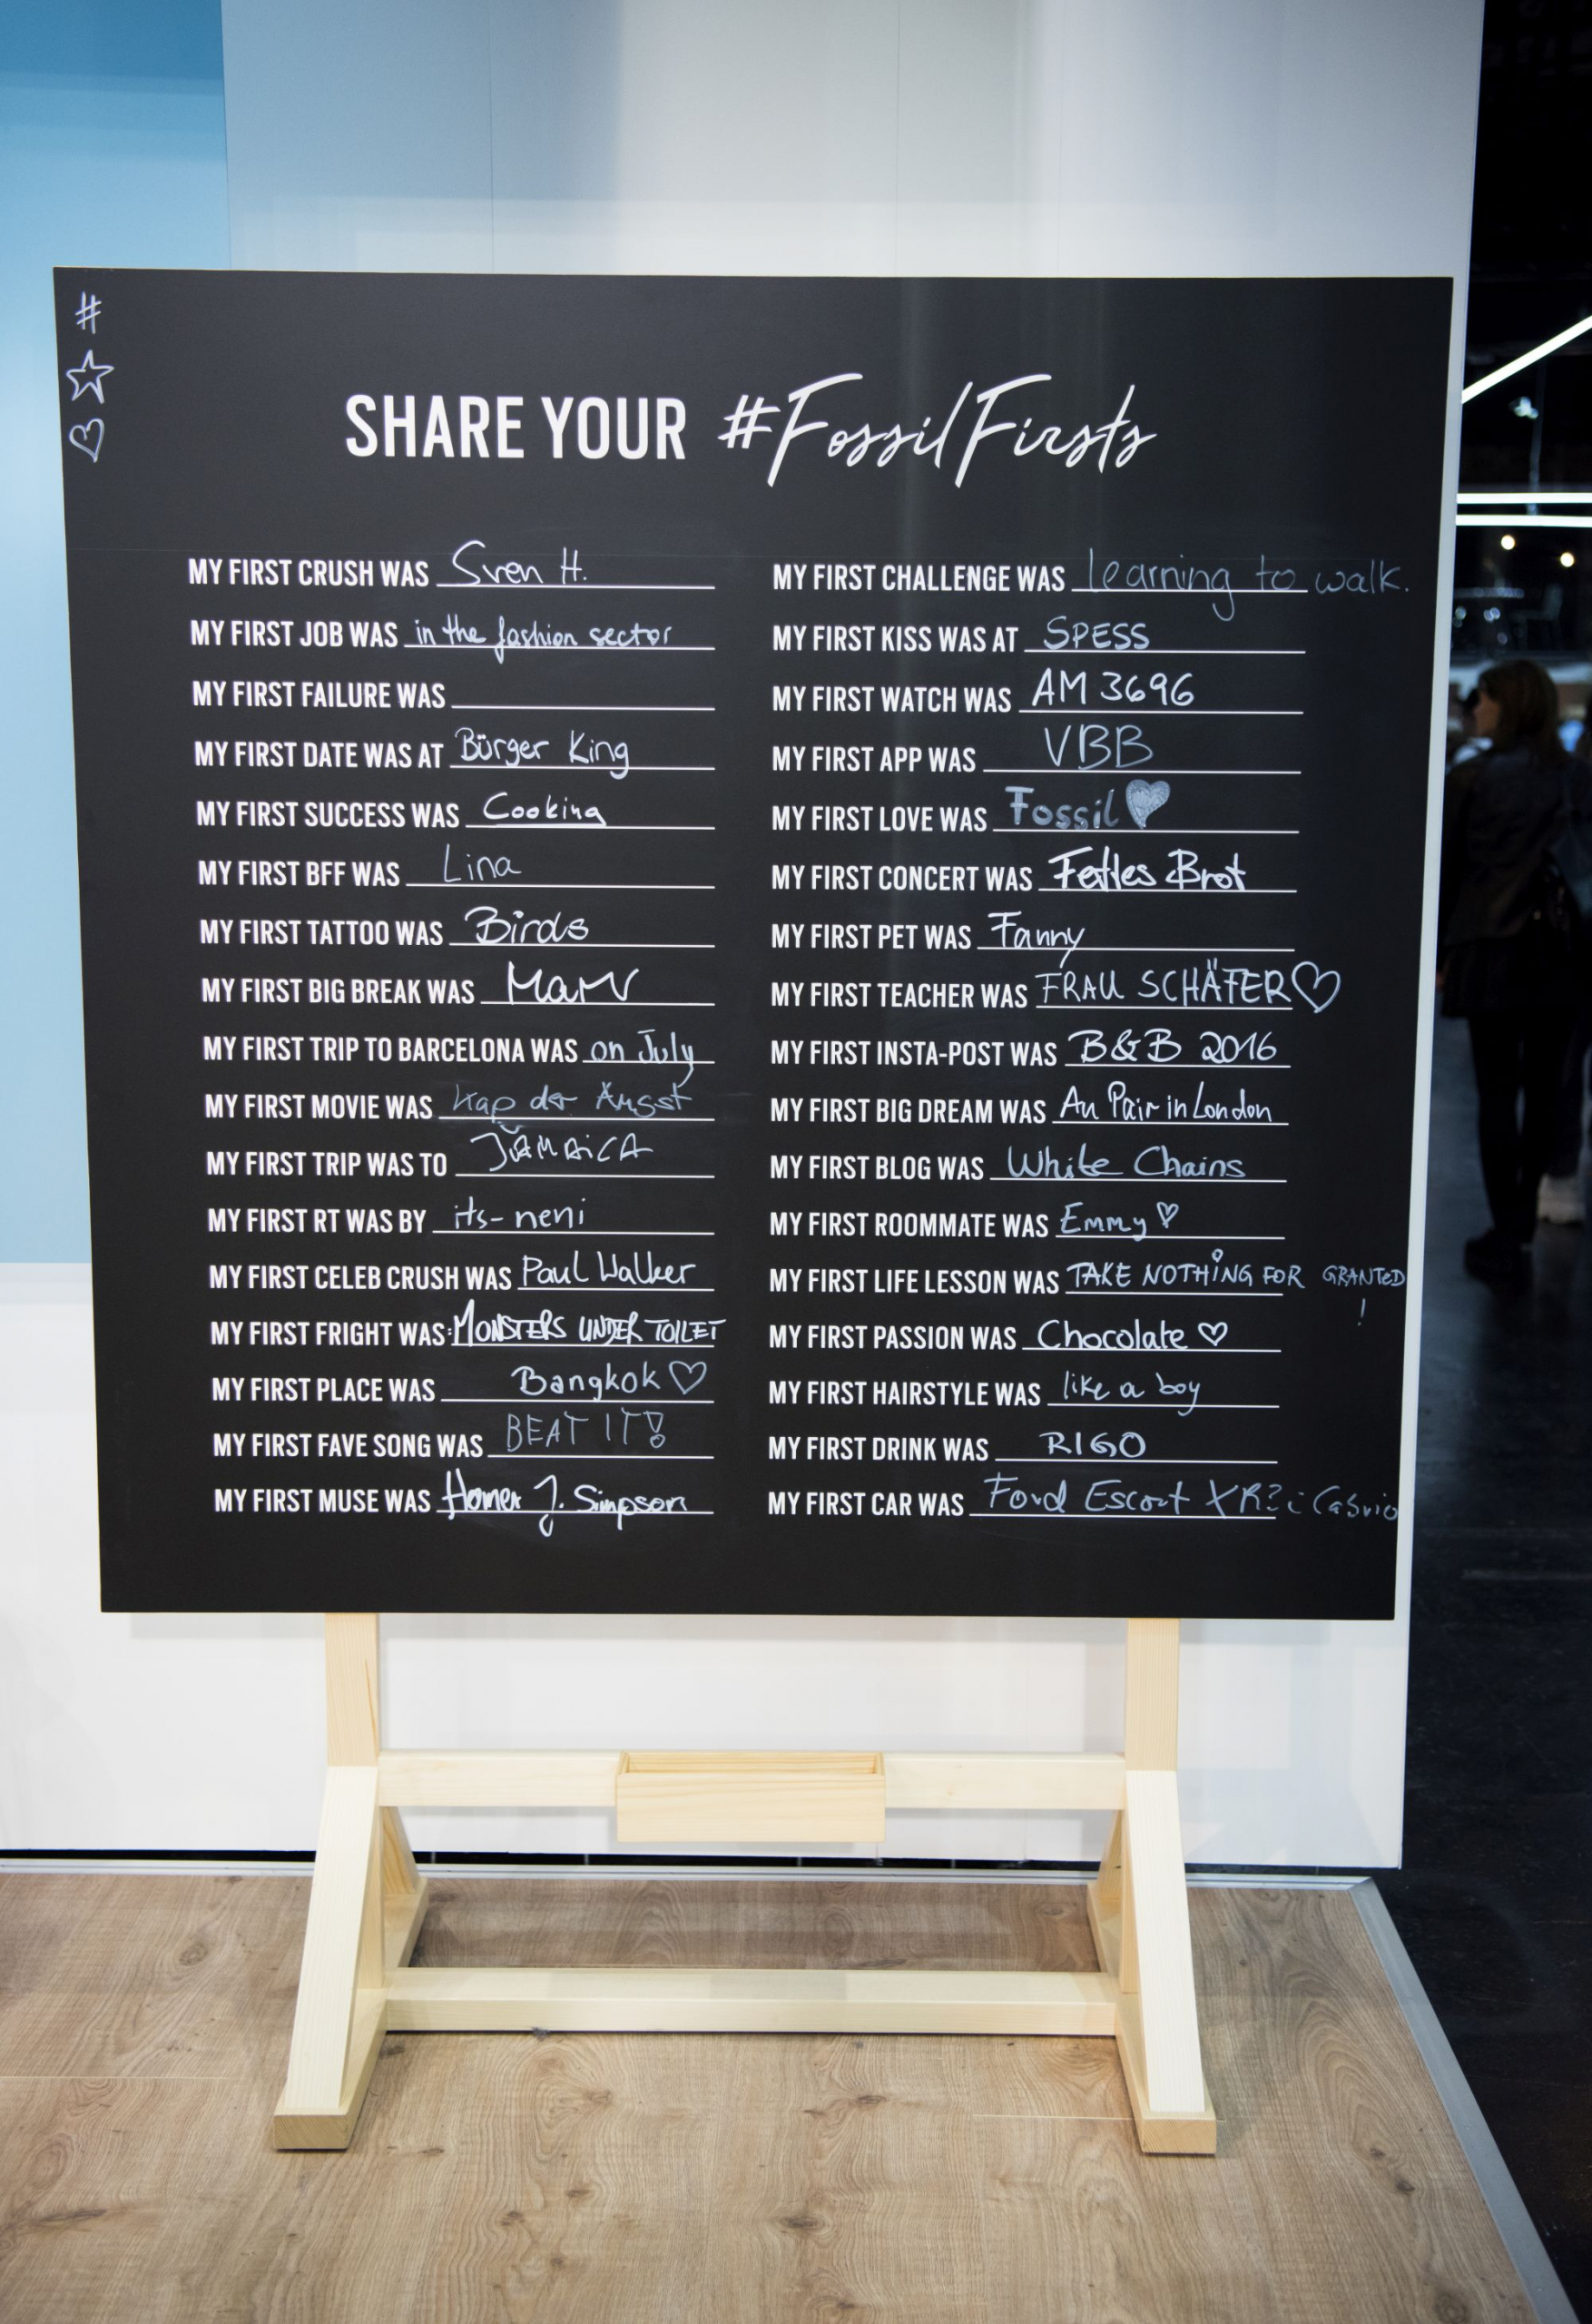 #
SHARE YOUR #FossilFirsts
MY FIRST CRUSH WAS Sven H.
MY FIRST JOB WAS in the fashion sector
MY FIRST FAILURE WAS
MY FIRST DATE WAS AT Bürger King
MY FIRST SUCCESS WAS Cooking
MY FIRST BFF WAS Lina
MY FIRST TATTOO WAS Birds
MY FIRST BIG BREAK WAS
MY FIRST TRIP TO BARCELONA WAS on July
MY FIRST MOVIE WAS Kap der Angst
MY FIRST TRIP WAS TO JAMAiCA
MY FIRST RT WAS BY its-neni
MY FIRST CELEB CRUSH WAS Paul Walker
MY FIRST FRIGHT WAS: MONSTERS UNDER TOILET
MY FIRST PLACE WAS Bangkok ♡
MY FIRST FAVE SONG WAS BEAT IT!
MY FIRST MUSE WAS Homer J. Simpson
MY FIRST CHALLENGE WAS learning to walk.
MY FIRST KISS WAS AT SPESS
MY FIRST WATCH WAS AM 3696
MY FIRST APP WAS VBB
MY FIRST LOVE WAS Fossil ♥
MY FIRST CONCERT WAS Fettes Brot
MY FIRST PET WAS Fanny
MY FIRST TEACHER WAS FRAU SCHÄFER ♡
MY FIRST INSTA-POST WAS B&B 2016
MY FIRST BIG DREAM WAS Au Pair in London
MY FIRST BLOG WAS White Chains
MY FIRST ROOMMATE WAS Emmy ♡
MY FIRST LIFE LESSON WAS TAKE NOTHiNG FOR GRANTED !
MY FIRST PASSION WAS Chocolate ♡
MY FIRST HAIRSTYLE WAS like a boy
MY FIRST DRINK WAS RIGO
MY FIRST CAR WAS Ford Escort XR3i Cabrio